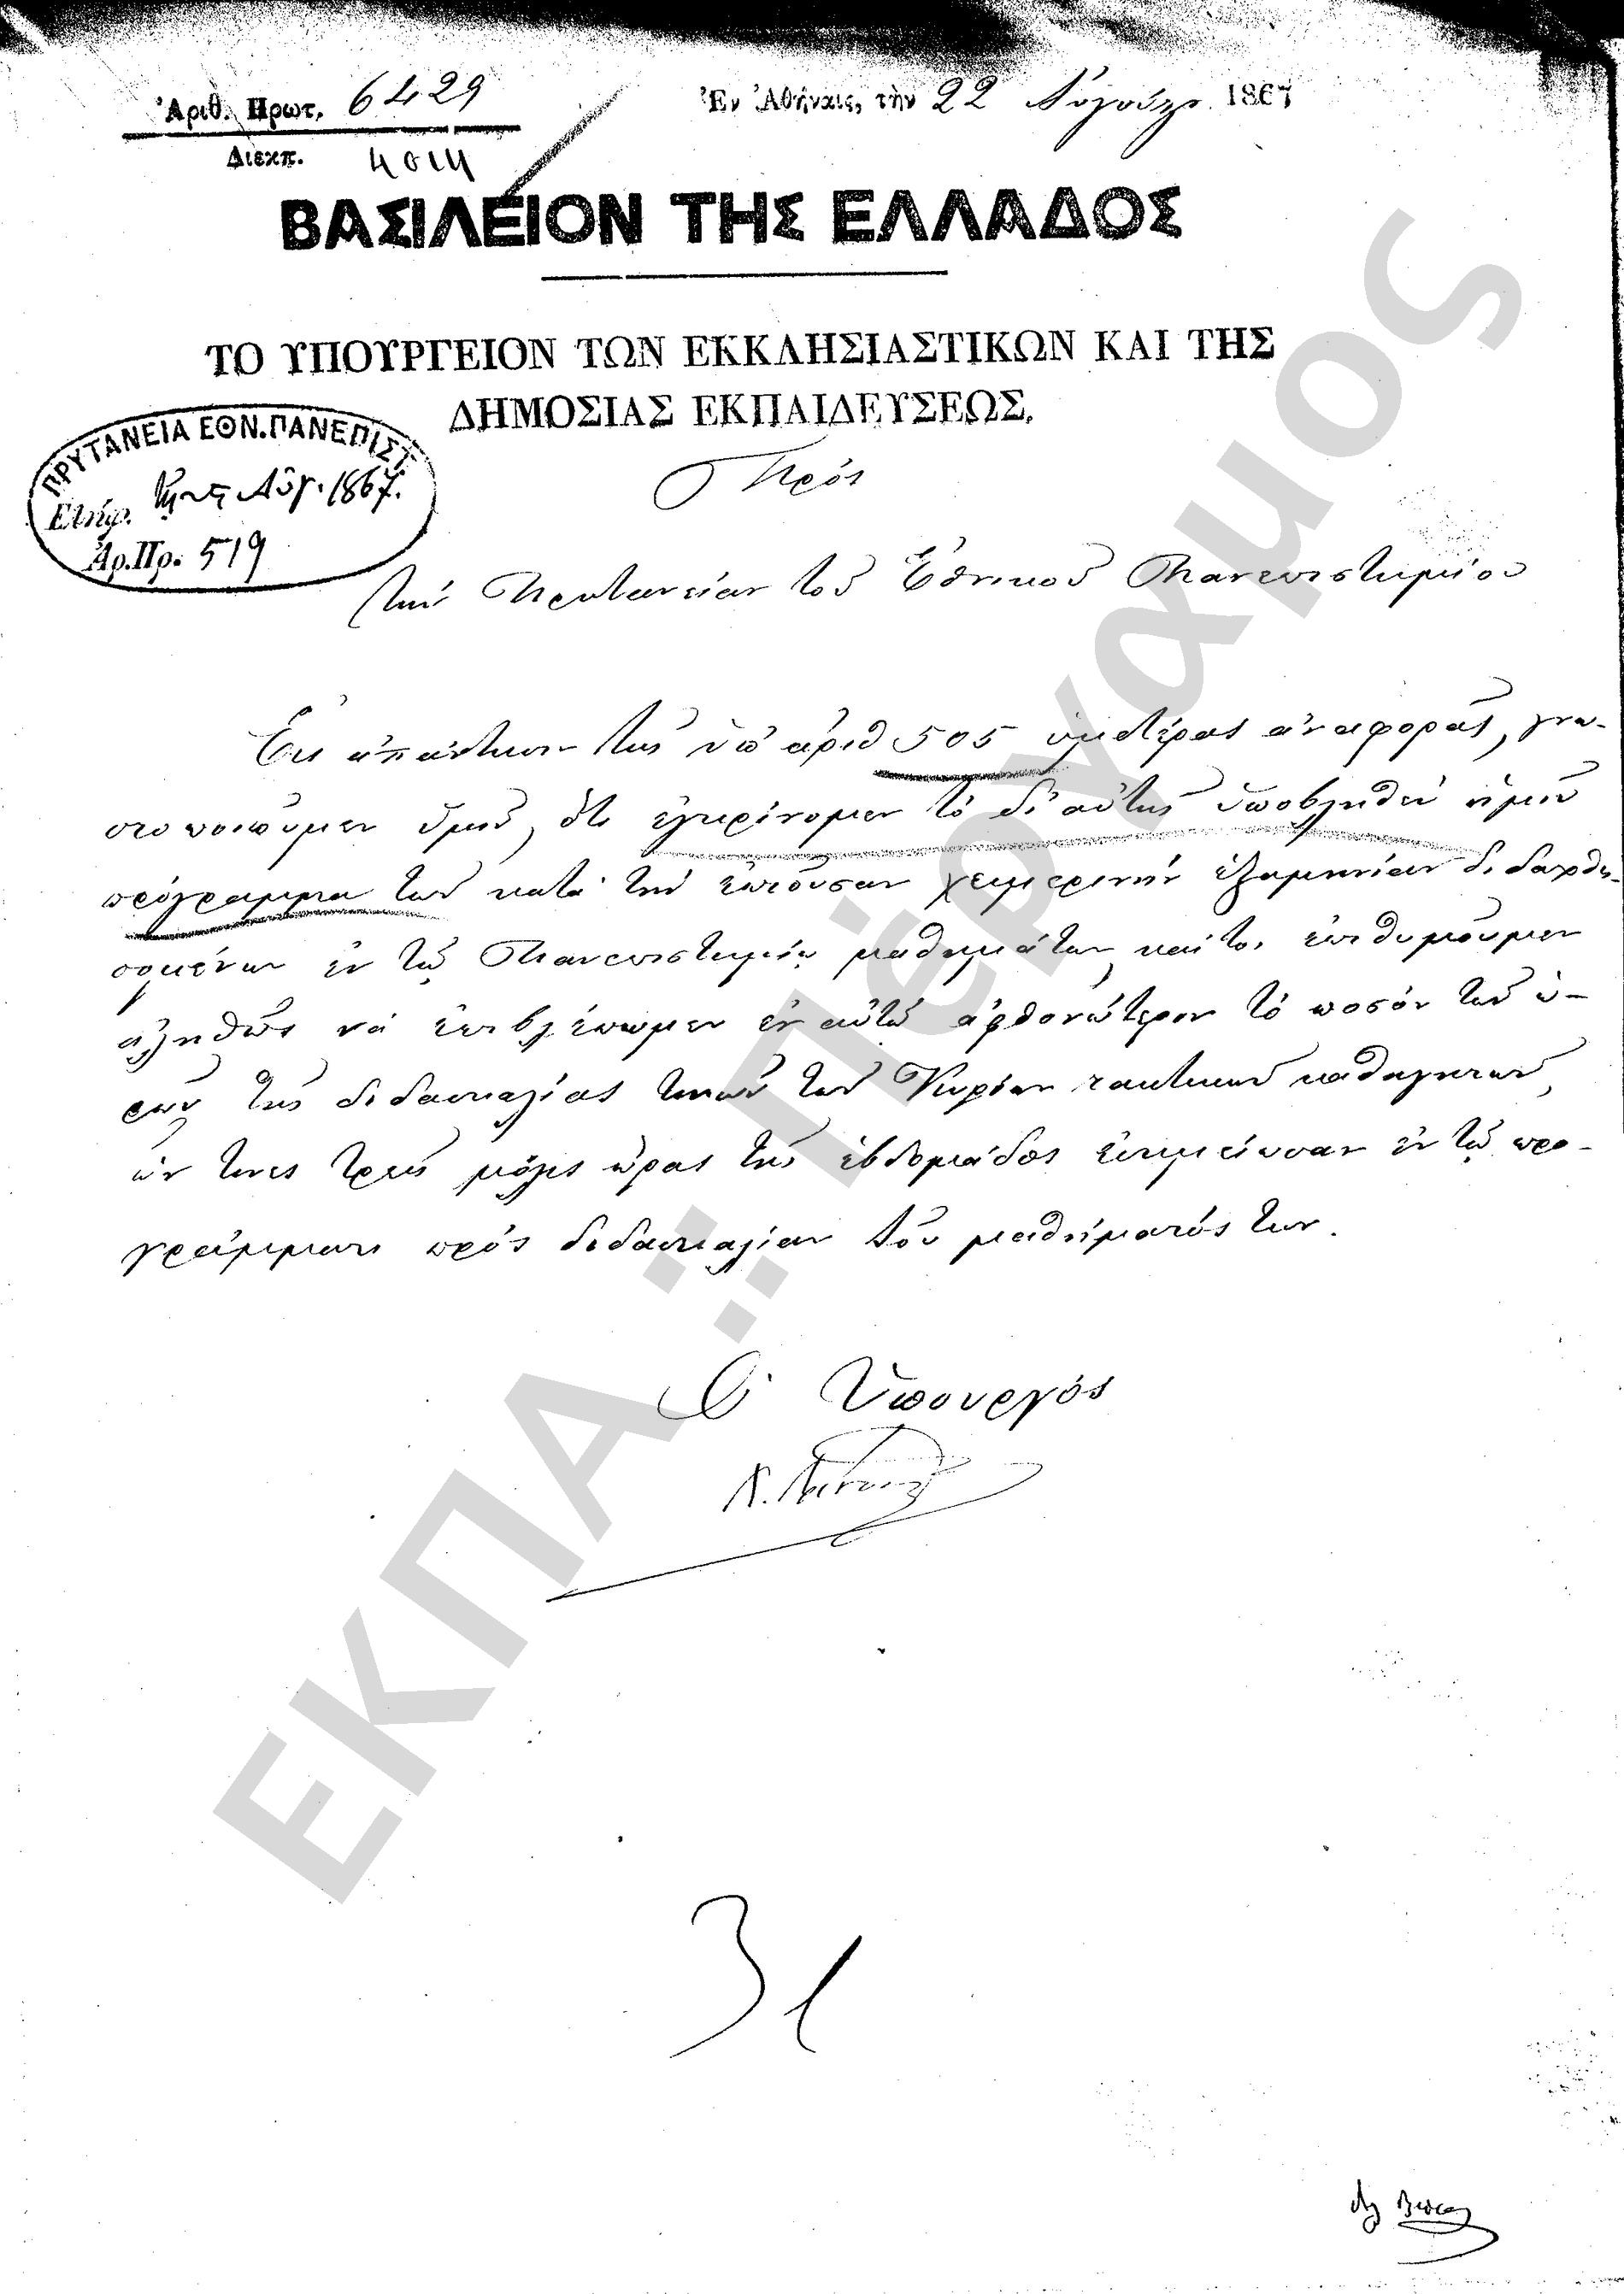 Ἀριθ. Πρωτ. 6429
Διεκπ. 4014
Ἐν Ἀθήναις, τὴν 22 Αὐγούστου 1867
ΒΑΣΙΛΕΙΟΝ ΤΗΣ ΕΛΛΑΔΟΣ
ΤΟ ΥΠΟΥΡΓΕΙΟΝ ΤΩΝ ΕΚΚΛΗΣΙΑΣΤΙΚΩΝ ΚΑΙ ΤΗΣ
ΔΗΜΟΣΙΑΣ ΕΚΠΑΙΔΕΥΣΕΩΣ.
ΠΡΥΤΑΝΕΙΑ ΕΘΝ. ΠΑΝΕΠΙΣΤ.
Ἐλήφ. Αὐγ. 1867.
Ἀρ. Πρ. 519
Πρὸς
τὴν Πρυτανείαν τοῦ Ἐθνικοῦ Πανεπιστημίου
Εἰς ἀπάντησιν τῆς ὑπ' ἀριθ 505 ὑμετέρας ἀναφορᾶς, γνω-
στοποιοῦμεν ὑμῖν, ὅτι ἐγκρίνομεν τὸ δι' αὐτῆς ὑποβληθὲν ἡμῖν
πρόγραμμα τῶν κατὰ τὴν ἐπιοῦσαν χειμερινὴν ἑξαμηνίαν διδαχθη-
σομένων ἐν τῷ Πανεπιστημίῳ μαθημάτων, καίτοι ἐπιθυμοῦμεν
ἀληθῶς νὰ ἐπιβλέπωμεν ἐν αὐτῷ ἀφθονώτερον τὸ ποσὸν τῶν ὡ-
ρῶν τῆς διδασκαλίας τινῶν τῶν Κυρίων τακτικῶν καθηγητῶν,
ὧν τινες τρεῖς μόλις ὥρας τῆς ἑβδομάδος ἐσημείωσαν ἐν τῷ προ-
γράμματι πρὸς διδασκαλίαν τοῦ μαθήματός των.
Ὁ Ὑπουργὸς
31
ΕΚΠΑ:: Πέργαμος